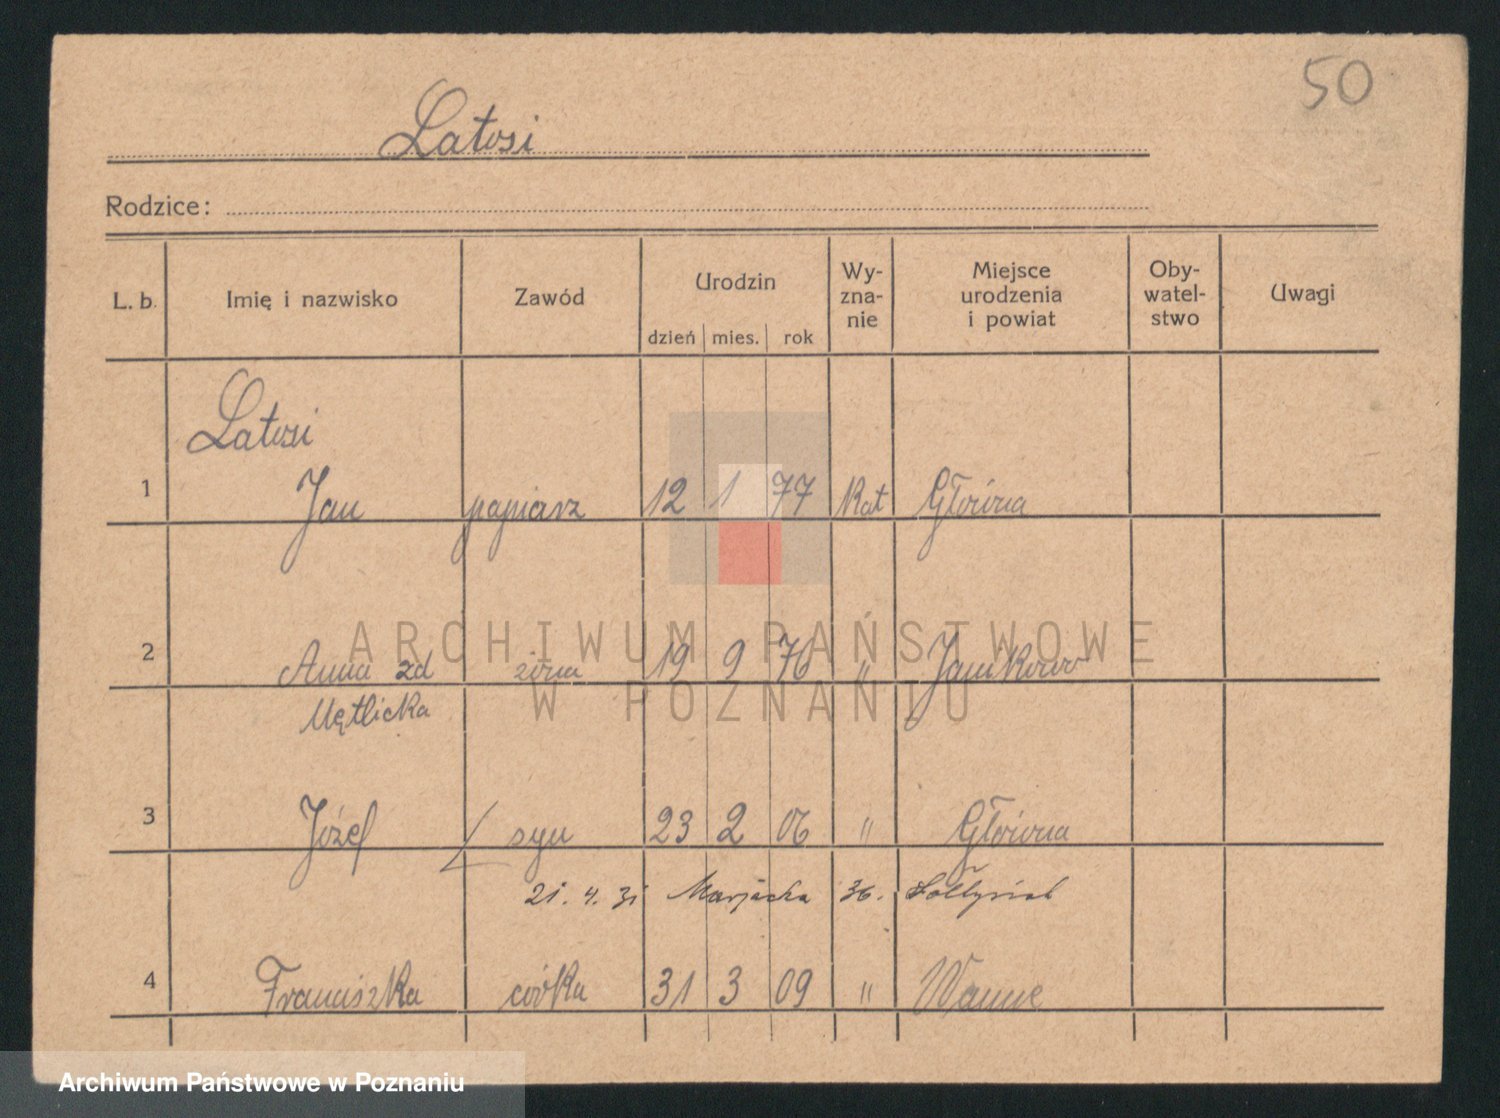 50
Latosi
Rodzice:
L. b. Imię i nazwisko Zawód Urodzin dzień mies. rok Wy-zna-nie Miejsce urodzenia i powiat Oby-watel-stwo Uwagi
Latosi
1 Jan 12 1 77 Kat Główna
2 Anna zd żona 19 9 76 " Janikowo
Mętlicka
3 Józef syn 23 2 06 " Główna
21. 4. 31 36.
4 Franciszka córka 31 3 09 " Wanne
ARCHIWUM PAŃSTWOWE
W POZNANIU
Archiwum Państwowe w Poznaniu